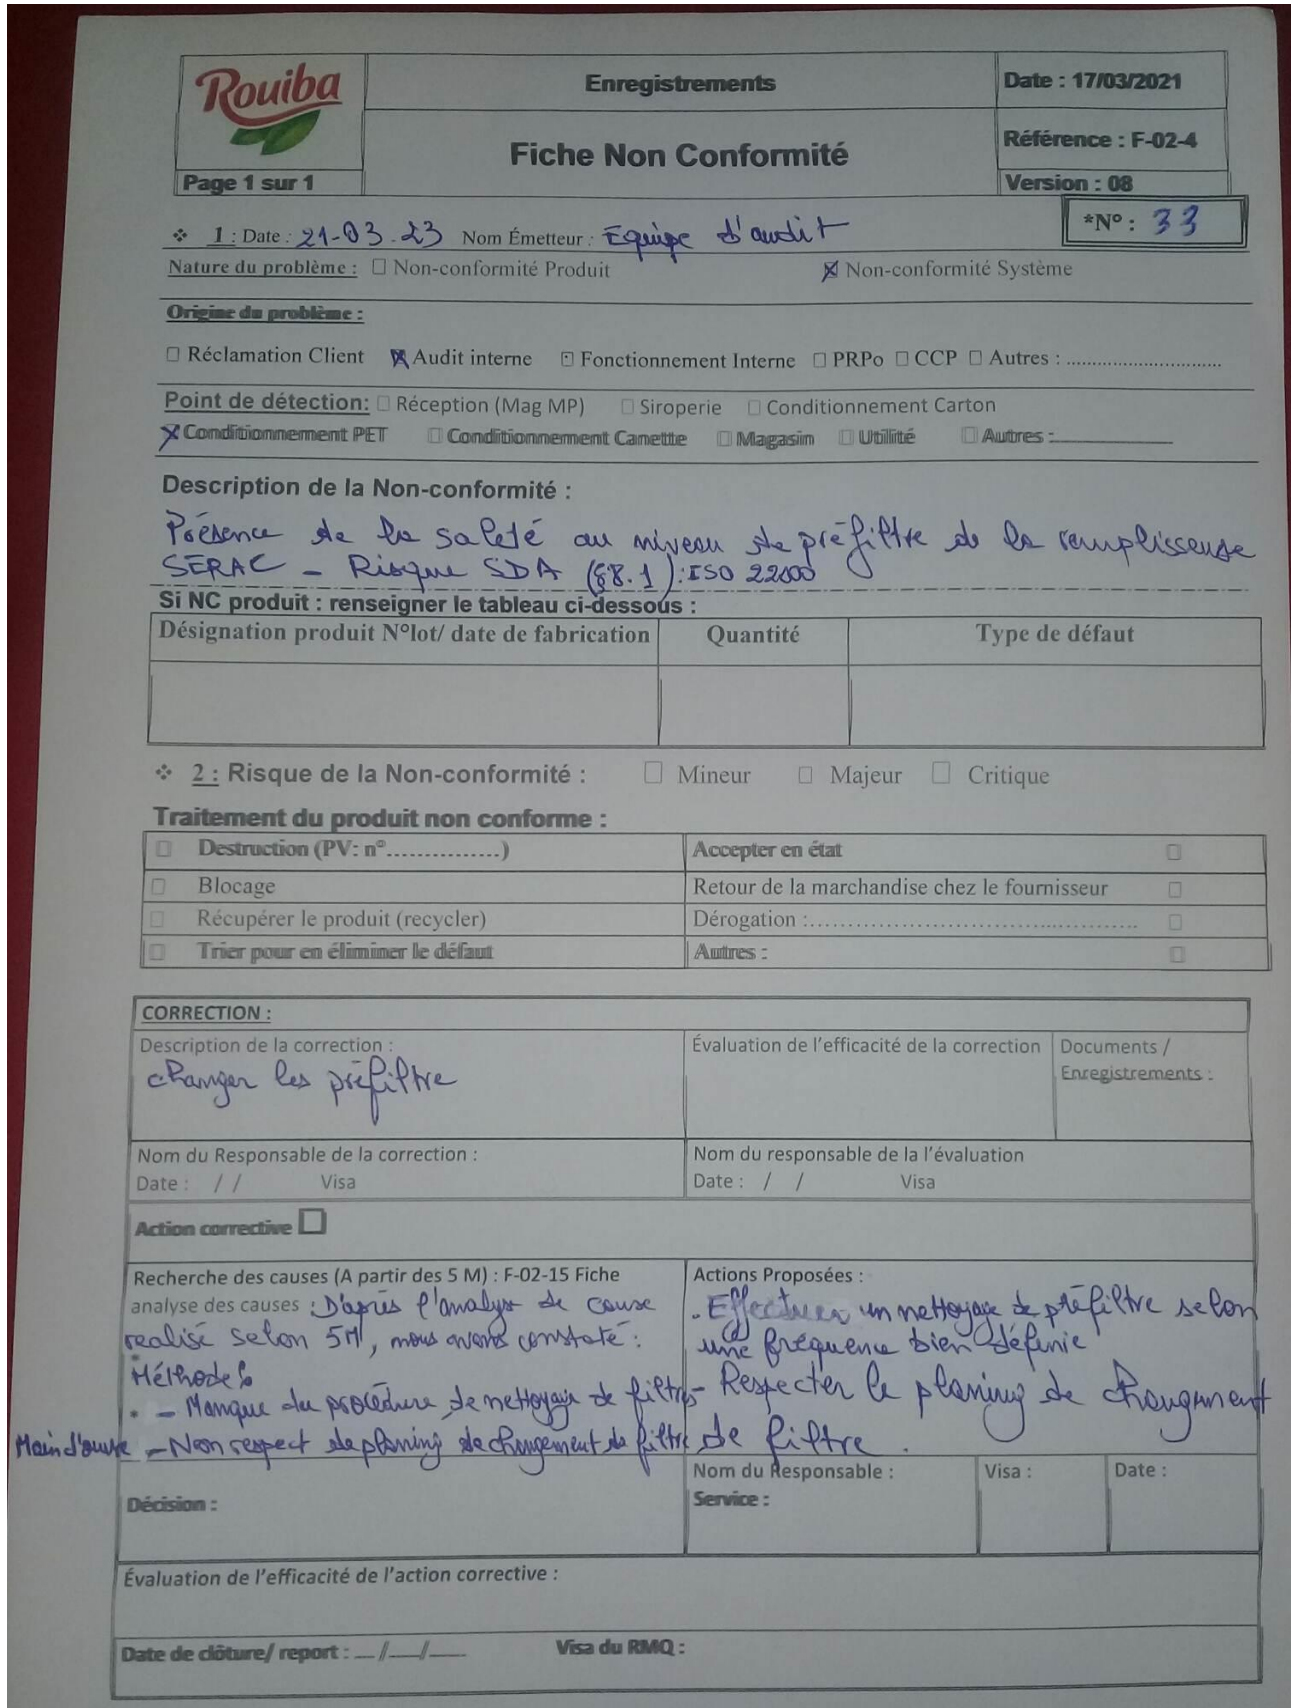 Rouiba
Enregistrements
Date : 17/03/2021
Fiche Non Conformité
Référence : F-02-4
Page 1 sur 1
Version : 08
*N° : 33
❖ 1 : Date : 21-03-23 Nom Émetteur : Equipe d'audit
Nature du problème : ☐ Non-conformité Produit ☒ Non-conformité Système
Origine du problème :
☐ Réclamation Client ☒ Audit interne ☐ Fonctionnement Interne ☐ PRPo ☐ CCP ☐ Autres : ..............................
Point de détection: ☐ Réception (Mag MP) ☐ Siroperie ☐ Conditionnement Carton
☒ Conditionnement PET ☐ Conditionnement Canette ☐ Magasin ☐ Utilité ☐ Autres :
Description de la Non-conformité :
Présence de la saleté au niveau de préfiltre de la remplisseuse
SERAC - Risque SDA (§8.1) : ISO 22000
Si NC produit : renseigner le tableau ci-dessous :
Désignation produit N°lot/ date de fabrication Quantité Type de défaut
❖ 2 : Risque de la Non-conformité : ☐ Mineur ☐ Majeur ☐ Critique
Traitement du produit non conforme :
☐ Destruction (PV: n°...............) Accepter en état ☐
☐ Blocage Retour de la marchandise chez le fournisseur ☐
☐ Récupérer le produit (recycler) Dérogation :............................................. ☐
☐ Trier pour en éliminer le défaut Autres : ☐
CORRECTION :
Description de la correction :
changer les préfiltre
Évaluation de l'efficacité de la correction
Documents /
Enregistrements :
Nom du Responsable de la correction :
Date : / / Visa
Nom du responsable de la l'évaluation
Date : / / Visa
Action corrective ☐
Recherche des causes (A partir des 5 M) : F-02-15 Fiche
analyse des causes : D'après l'analyse de cause
realisé selon 5M, nous avons constaté :
Méthode :
- Manque du procédure de nettoyage de filtres
Main d'ouvre - Non respect de planing de changement de filtre
Actions Proposées :
. Effectuer un nettoyage de préfiltre selon
une fréquence bien définie
- Respecter le planing de changment
de filtre.
Décision :
Nom du Responsable :
Service :
Visa :
Date :
Évaluation de l'efficacité de l'action corrective :
Date de clôture/ report : __/__/__ Visa du RMQ :